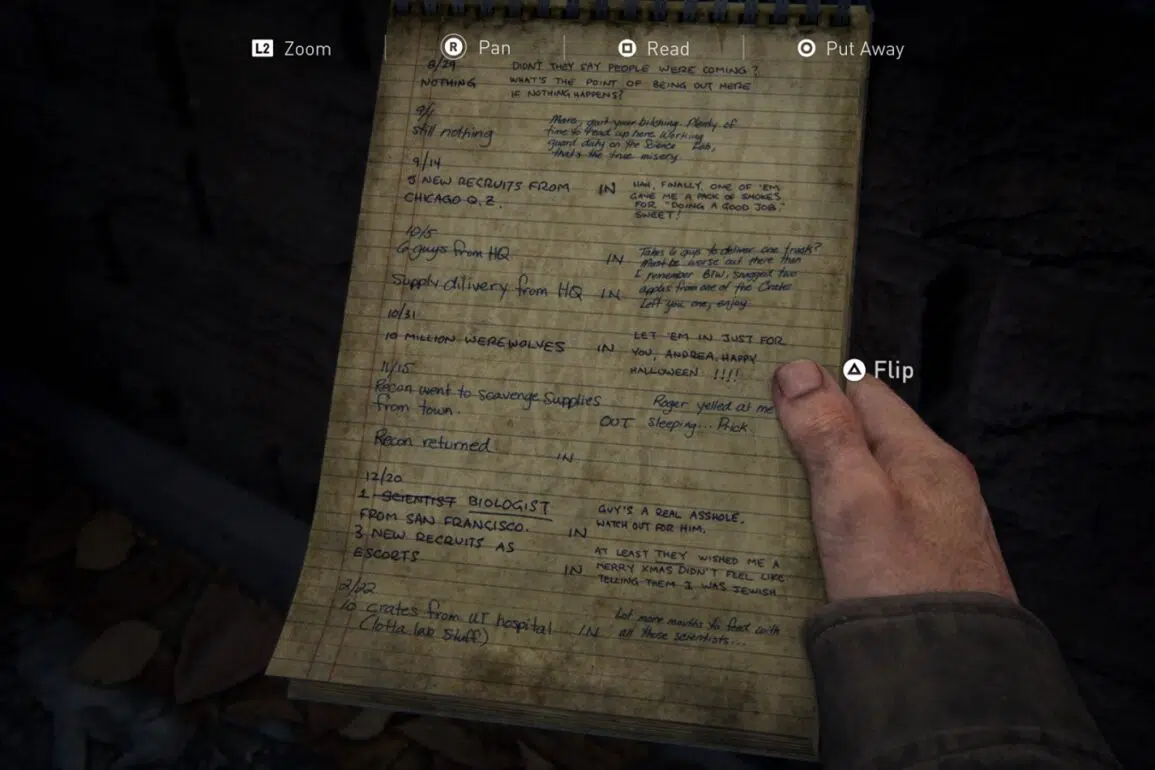 L2 Zoom
R Pan
Read
Put Away
8/29
NOTHING
DIDN'T THEY SAY PEOPLE WERE COMING?
WHAT'S THE POINT OF BEING OUT HERE
IF NOTHING HAPPENS?
still nothing
your bitching. Plenty of
time to read up here. Working
guard duty on the Science Lab,
that's the true misery.
9/14
5 NEW RECRUITS FROM
CHICAGO Q.Z.
IN
HAH, FINALLY, ONE OF 'EM
GAVE ME A PACK OF SMOKES
FOR "DOING A GOOD JOB."
SWEET!
10/5
6 guys from HQ
IN
Takes 6 guys to deliver one truck?
Must be worse out there than
I remember. BTW, snagged two
apples from one of the Crates
Left you one, enjoy.
Supply dilivery from HQ
IN
10/31
10 MILLION WEREWOLVES
IN
LET 'EM IN JUST FOR
YOU, ANDREA. HAPPY
HALLOWEEN !!!!
Flip
11/15
Recon went to scavenge supplies
from town.
OUT
Roger yelled at me
sleeping... Prick.
Recon returned
IN
12/20
1 SCIENTIST BIOLOGIST
FROM SAN FRANCISCO.
IN
GUY'S A REAL ASSHOLE.
WATCH OUT FOR HIM.
3 NEW RECRUITS AS
ESCORTS
IN
AT LEAST THEY WISHED ME A
MERRY XMAS DIDN'T FEEL LIKE
TELLING THEM I WAS JEWISH
2/22
10 crates from UT hospital
(lotta lab stuff)
IN
Lot more mouths to feed with
all those scientists...